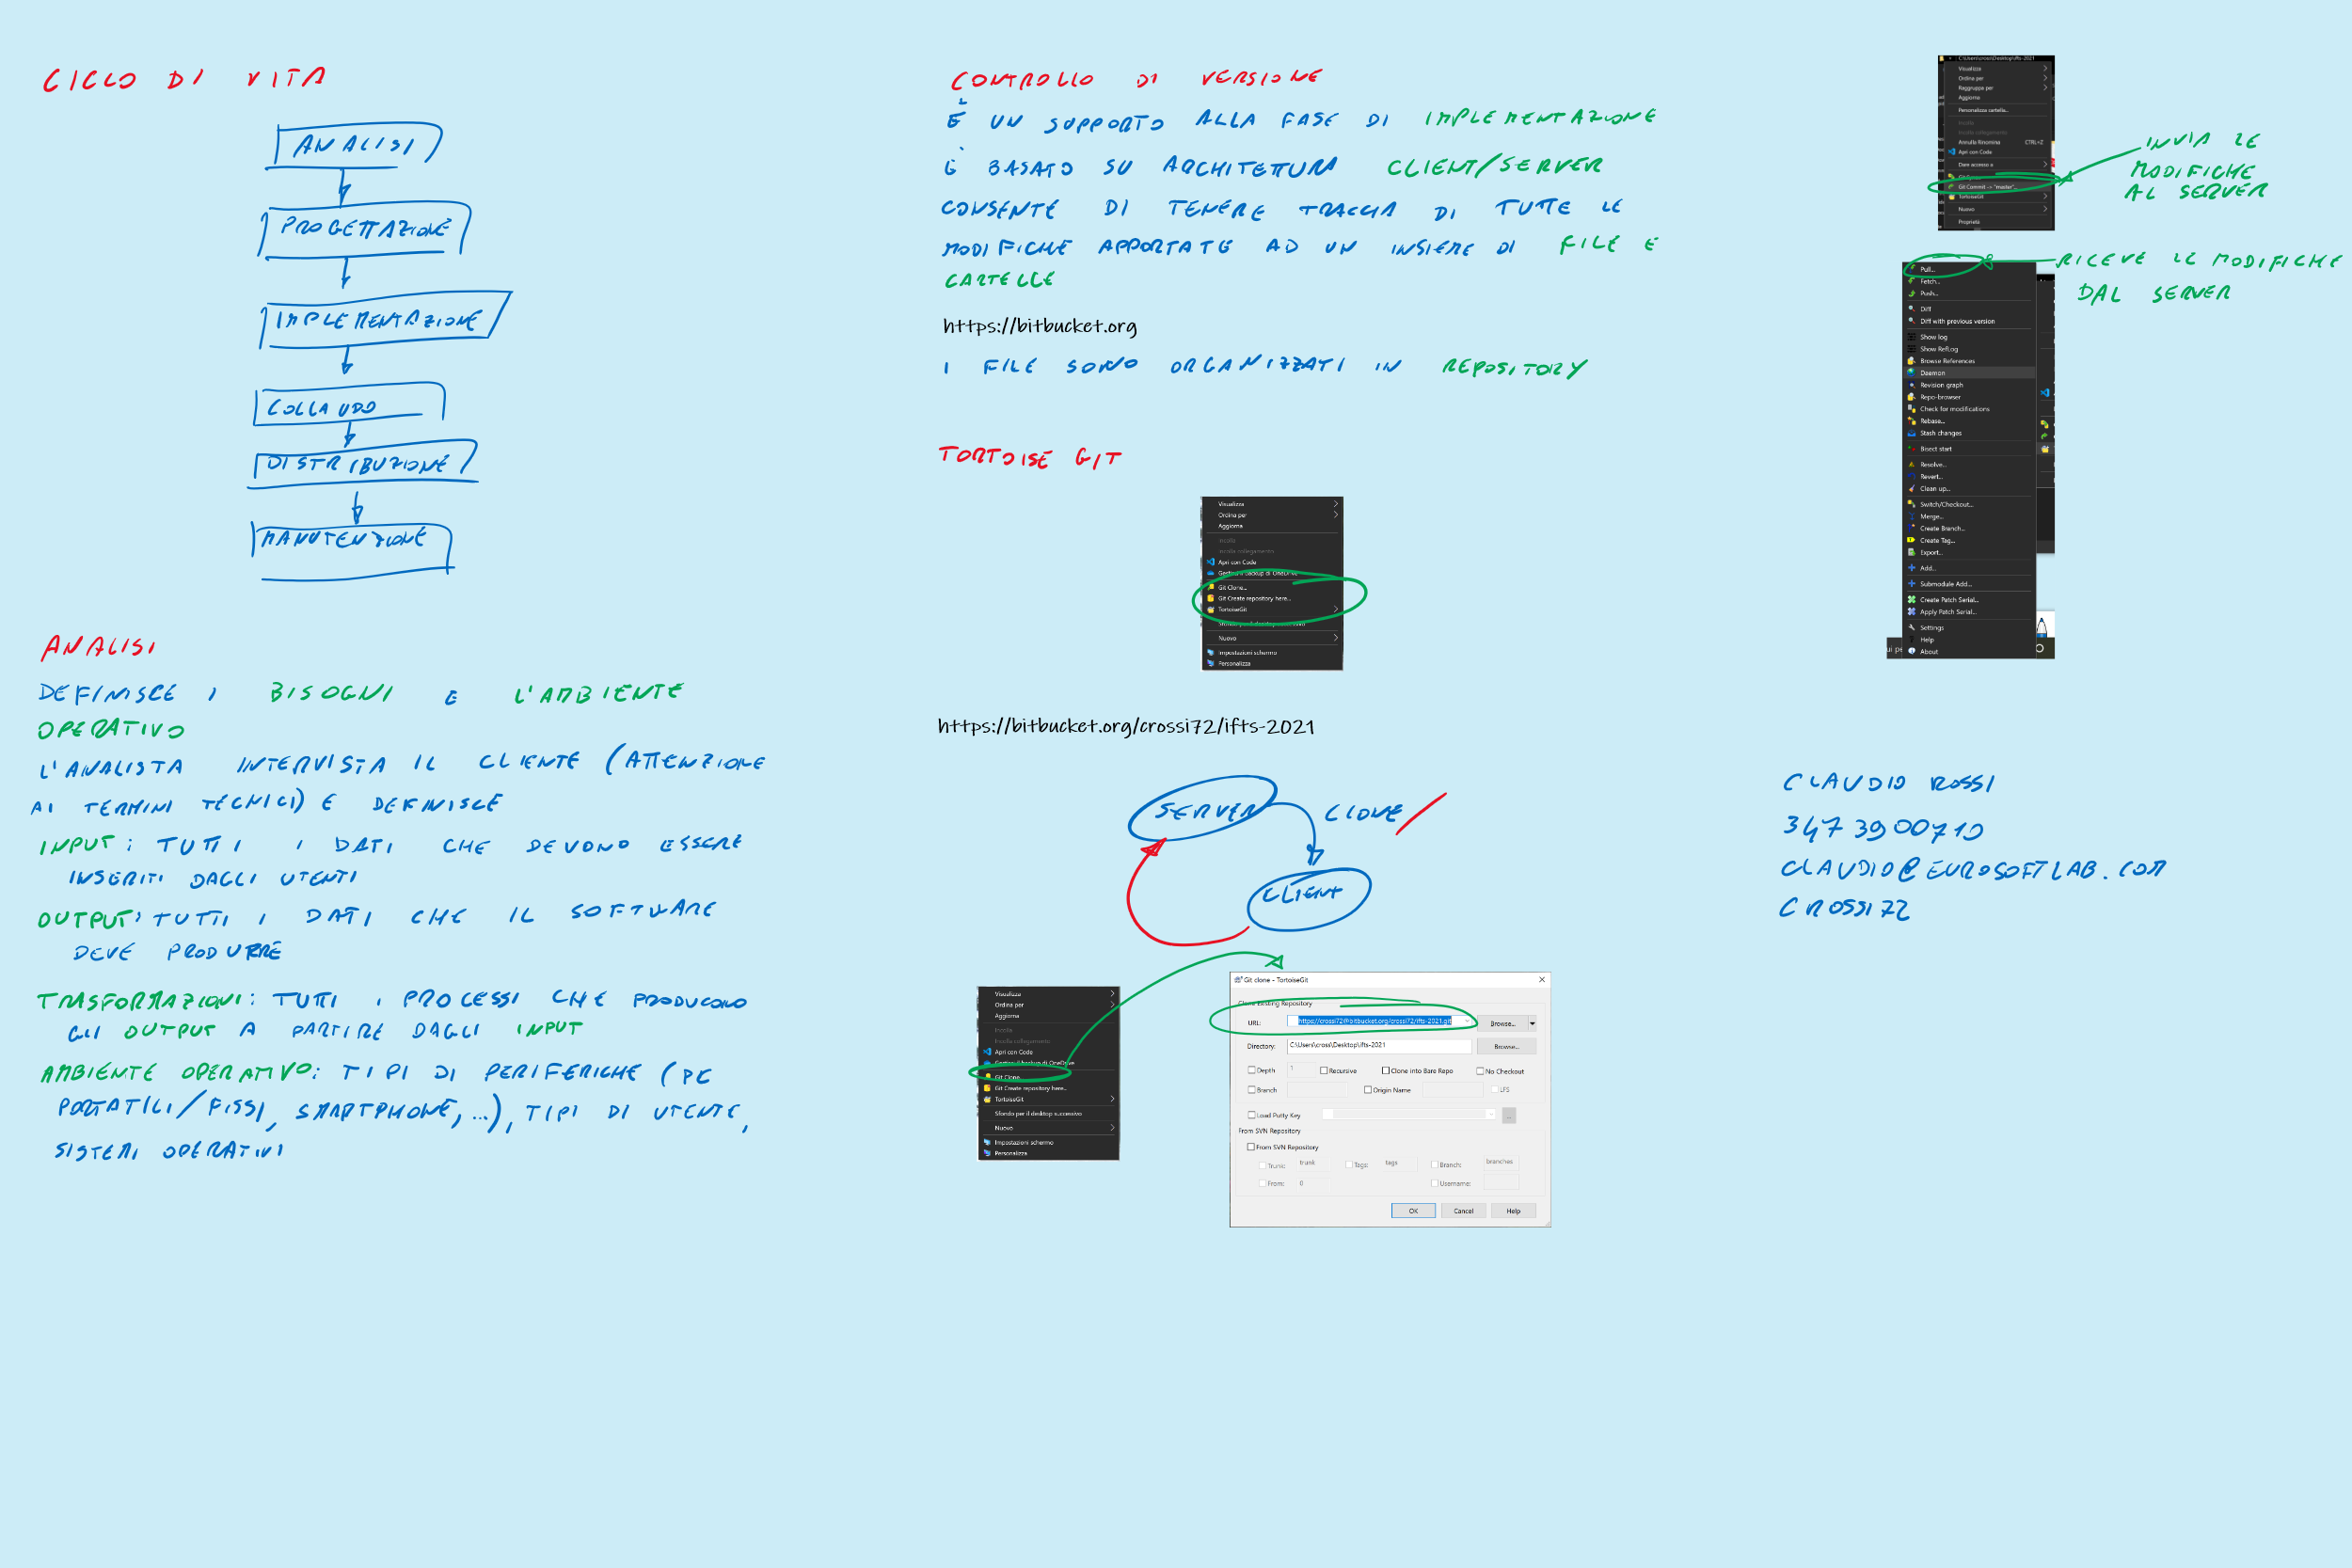 CICLO DI VITA
ANALISI
PROGETTAZIONE
IMPLEMENTAZIONE
COLLAUDO
DISTRIBUZIONE
MANUTENZIONE
ANALISI
DEFINISCE I BISOGNI E L'AMBIENTE
OPERATIVO
L'ANALISTA INTERVISTA IL CLIENTE (ATTENZIONE
AI TERMINI TECNICI) E DEFINISCE
INPUT: TUTTI I DATI CHE DEVONO ESSERE
INSERITI DAGLI UTENTI
OUTPUT: TUTTI I DATI CHE IL SOFTWARE
DEVE PRODURRE
TRASFORMAZIONI: TUTTI I PROCESSI CHE PRODUCONO
GLI OUTPUT A PARTIRE DAGLI INPUT
AMBIENTE OPERATIVO: TIPI DI PERIFERICHE (PC
PORTATILI/FISSI, SMARTPHONE, ...), TIPI DI UTENTE,
SISTEMI OPERATIVI
CONTROLLO DI VERSIONE
È UN SUPPORTO ALLA FASE DI IMPLEMENTAZIONE
È BASATO SU ARCHITETTURA CLIENT/SERVER
CONSENTE DI TENERE TRACCIA DI TUTTE LE
MODIFICHE APPORTATE AD UN INSIEME DI FILE E
CARTELLE
https://bitbucket.org
I FILE SONO ORGANIZZATI IN REPOSITORY
TORTOISE GIT
Visualizza
Ordina per
Aggiorna
Incolla
Incolla collegamento
Apri con Code
Gestisci backup di OneDrive
Git Clone...
Git Create repository here...
TortoiseGit
Nuovo
Impostazioni schermo
Personalizza
https://bitbucket.org/crossi72/ifts-2021
SERVER
CLONE
CLIENT
Visualizza
Ordina per
Aggiorna
Incolla
Incolla collegamento
Apri con Code
Gestisci backup di OneDrive
Git Clone...
Git Create repository here...
TortoiseGit
Sfondo per il desktop successivo
Nuovo
Impostazioni schermo
Personalizza
Git clone - TortoiseGit
Clone Existing Repository
URL: https://crossi72@bitbucket.org/crossi72/ifts-2021.git Browse...
Directory: C:\Users\cross\Desktop\ifts-2021 Browse...
Depth 1 Recursive Clone into Bare Repo No Checkout
Branch Origin Name LFS
Load Putty Key ...
From SVN Repository
From SVN Repository
Trunk: trunk Tags: tags Branch: branches
From: 0 Username:
OK Cancel Help
C:\Users\cross\Desktop\ifts-2021
Visualizza
Ordina per
Raggruppa per
Aggiorna
Personalizza cartella...
Incolla
Incolla collegamento
Annulla Rinomina CTRL+Z
Apri con Code
Dare accesso a
Git Sync...
Git Commit -> "master"...
TortoiseGit
Nuovo
Proprietà
INVIA LE
MODIFICHE
AL SERVER
Pull...
Fetch...
Push...
Diff
Diff with previous version
Show log
Show RefLog
Browse References
Daemon
Revision graph
Repo-browser
Check for modifications
Rebase...
Stash changes
Bisect start
Resolve...
Revert...
Clean up...
Switch/Checkout...
Merge...
Create Branch...
Create Tag...
Export...
Add...
Submodule Add...
Create Patch Serial...
Apply Patch Serial...
Settings
Help
About
RICEVE LE MODIFICHE
DAL SERVER
CLAUDIO ROSSI
347 3900710
CLAUDIO@EUROSOFTLAB.COM
CROSSI72